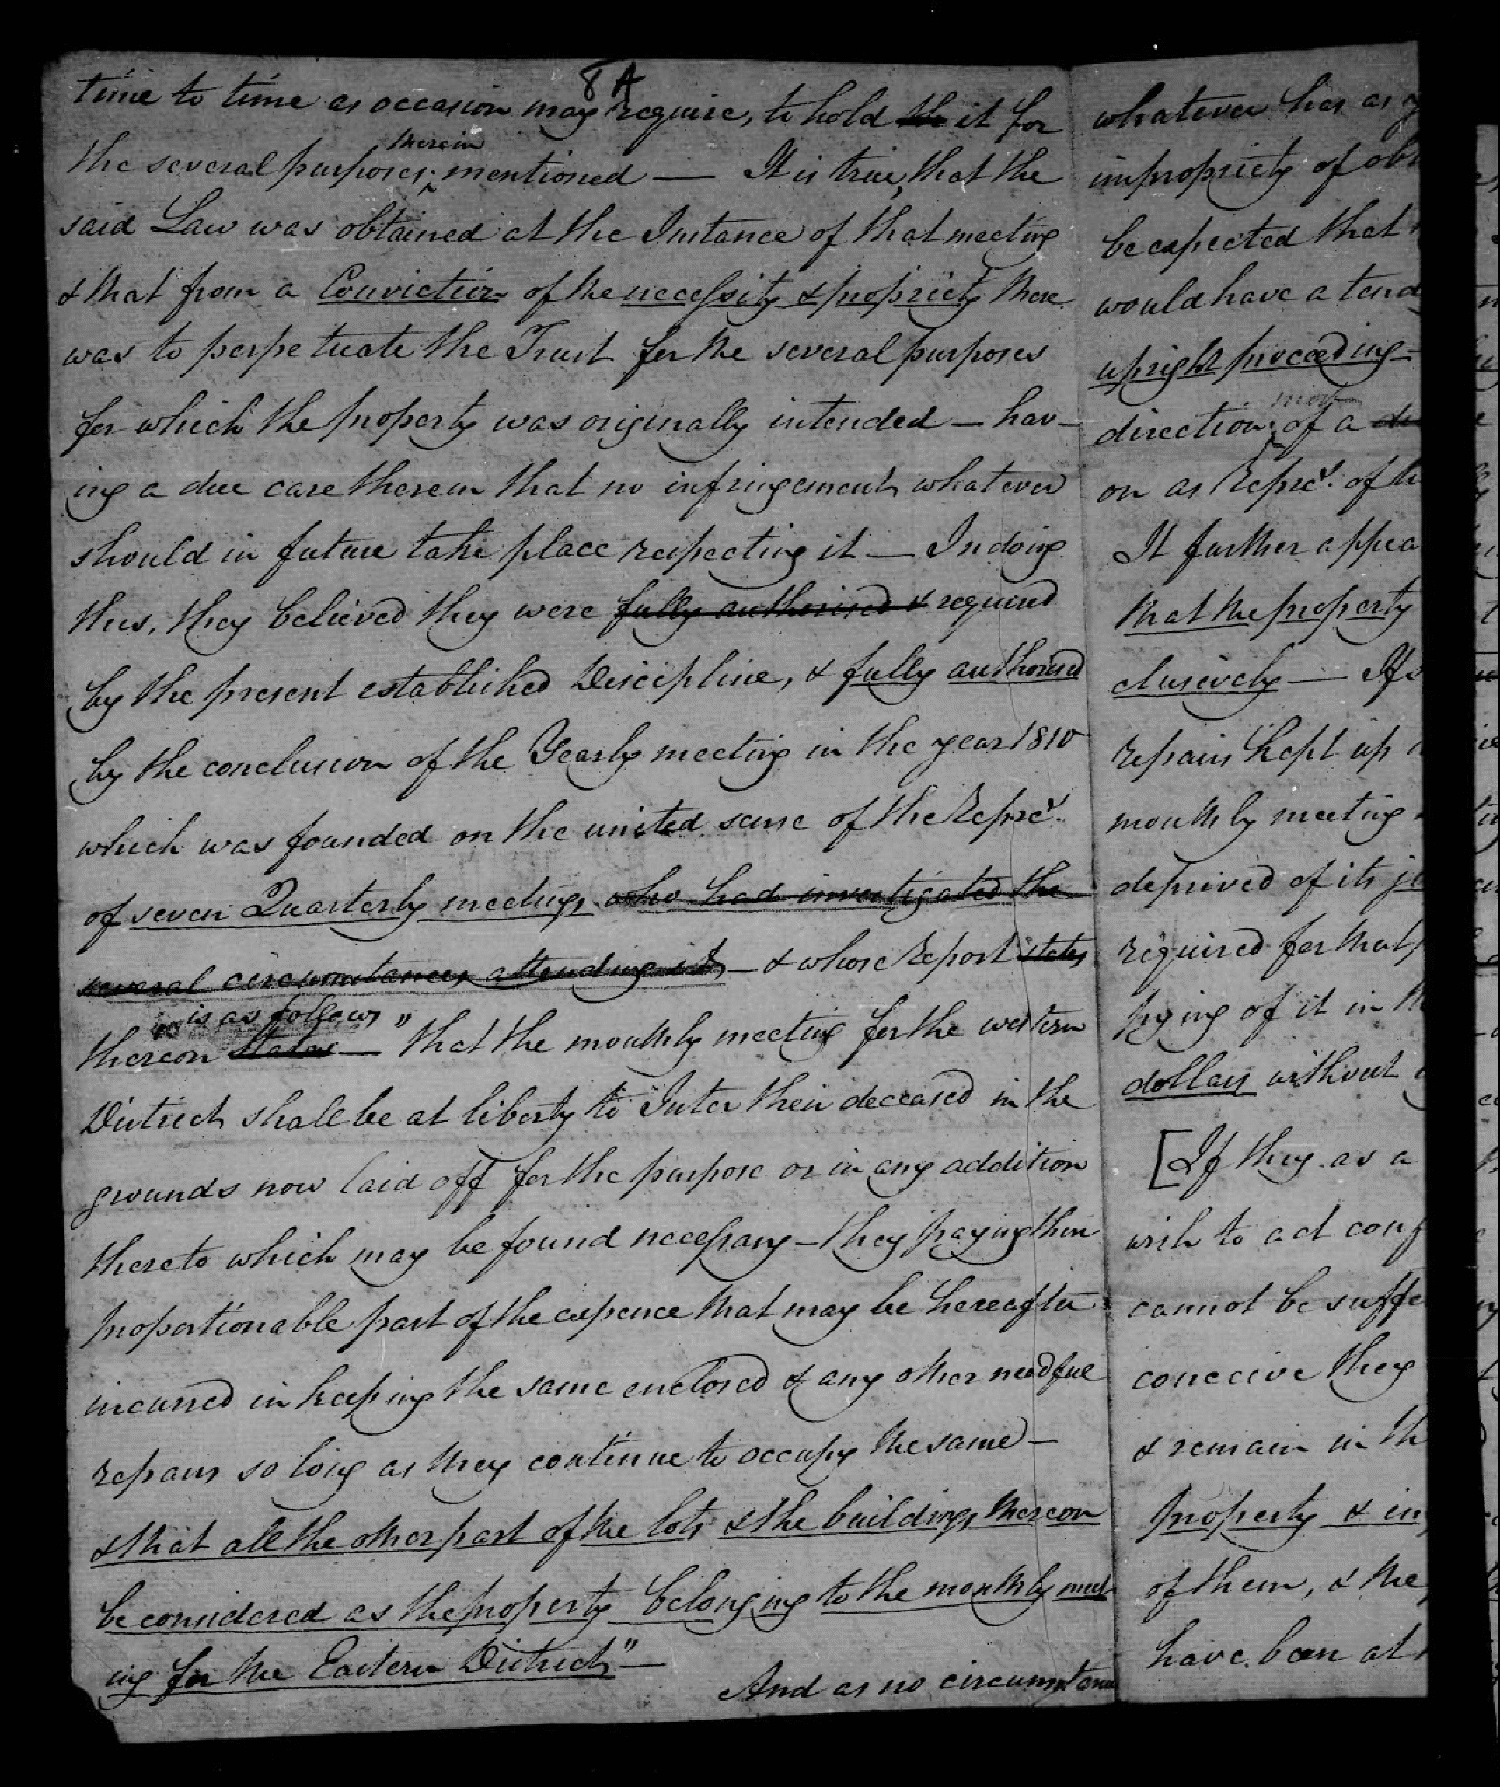 8 A
time to time as occasion may require, to hold the it for
the several purposes therein mentioned — It is true, that the
said Law was obtained at the Instance of that meeting
& that from a Conviction of the necessity & propriety there
was to perpetuate the Trust for the several purposes
for which the property was originally intended — hav-
ing a due care therein that no infringement whatever
should in future take place respecting it — In doing
thus, they believed they were fully authorised & required
by the present established Discipline, & fully authorised
by the conclusion of the Yearly meeting in the year 1810
which was founded on the united sense of the Repres.
of seven Quarterly meetings who had investigated the
several circumstances attending it, — & whose Report states
is as follows
thereon states — "that the monthly meeting for the western
District shall be at liberty to Inter their deceased in the
grounds now laid off for the purpose or in any addition
thereto which may be found necessary — they paying their
proportionable part of the expence that may be hereafter
incurred in keeping the same enclosed & any other needful
repairs so long as they continue to occupy the same —
& that all the other part of the lots & the buildings thereon
be considered as the property belonging to the monthly meet
ing for the Eastern District" —
And as no circumstance
whatever has as
impropriety of
be expected that
would have a
upright proceeding —
direction more of a
on as Repres. of
It further
that the property
clusively —
repairs kept up
monthly meeting
deprived of its
required for that
of it in
dollars without
[If they as a
wish to act
cannot be
conceive they
& remain in
property & in
of them, & the
have been at